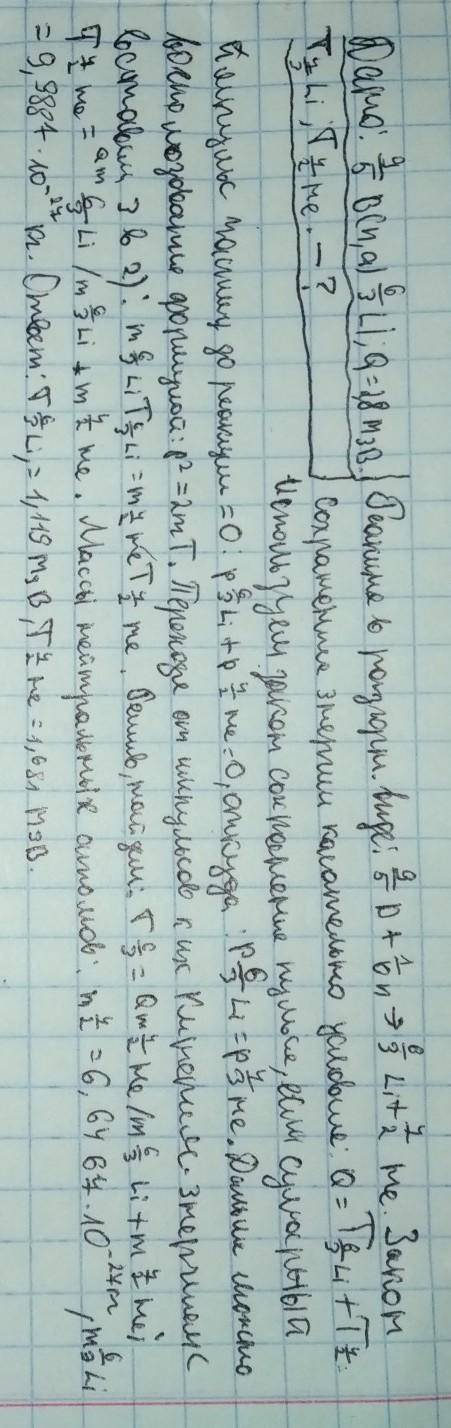 Дано: ⁹₅B(n,a)⁶₃Li; Q=2,8 МэВ. Реакция в разверн. виде: ⁹₅B + ¹₀n → ⁶₃Li + ⁴₂He. Закон
T⁶₃Li; T⁴₂He. – ? сохранения энергии касательно условие: Q = T⁶₃Li + T⁴₂.
Используем закон сохранение пульса, если суммарный
импульс частиц до реакции = 0: p⁶₃Li + p⁴₂He = 0, откуда: p⁶₃Li = p⁴₂He. Дальше можно
воспользование формулой: p² = 2mT. Переходе от импульсов к их кинетич. энергиям с
вставим 3 в 2): m⁶₃LiT⁶₃Li = m⁴₂HeT⁴₂He. Решив, найдем: T⁶₃ = Qm⁴₂He/m⁶₃Li + m⁴₂He;
T⁴₂He = Qm⁶₃Li/m⁶₃Li + m⁴₂He. Массы нейтральных атомов: m⁴₂ = 6,6467·10⁻²⁷кг, m⁶₃Li
= 9,9884·10⁻²⁷ кг. Ответ: T⁶₃Li, = 1,119 МэВ, T⁴₂He = 1,681 МэВ.